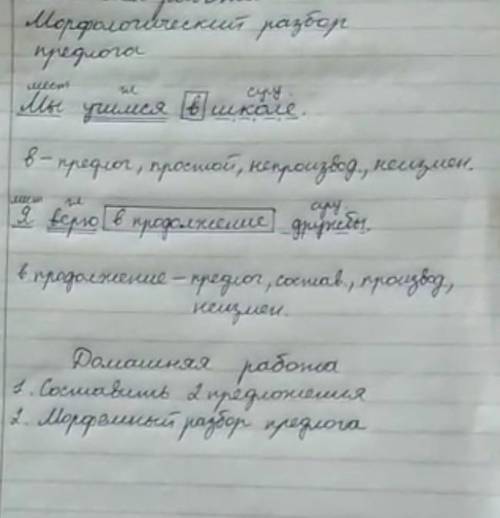 Морфологический разбор
предлога
мест гл сущ.
Мы учимся в школе.
в – предлог, простой, непроизвод., неизмен.
мест гл сущ.
Я верю в продолжение дружбы.
в продолжение – предлог, состав., производ,
неизмен.
Домашняя работа
1. Составить 2 предложения
2. Морфемный разбор предлога